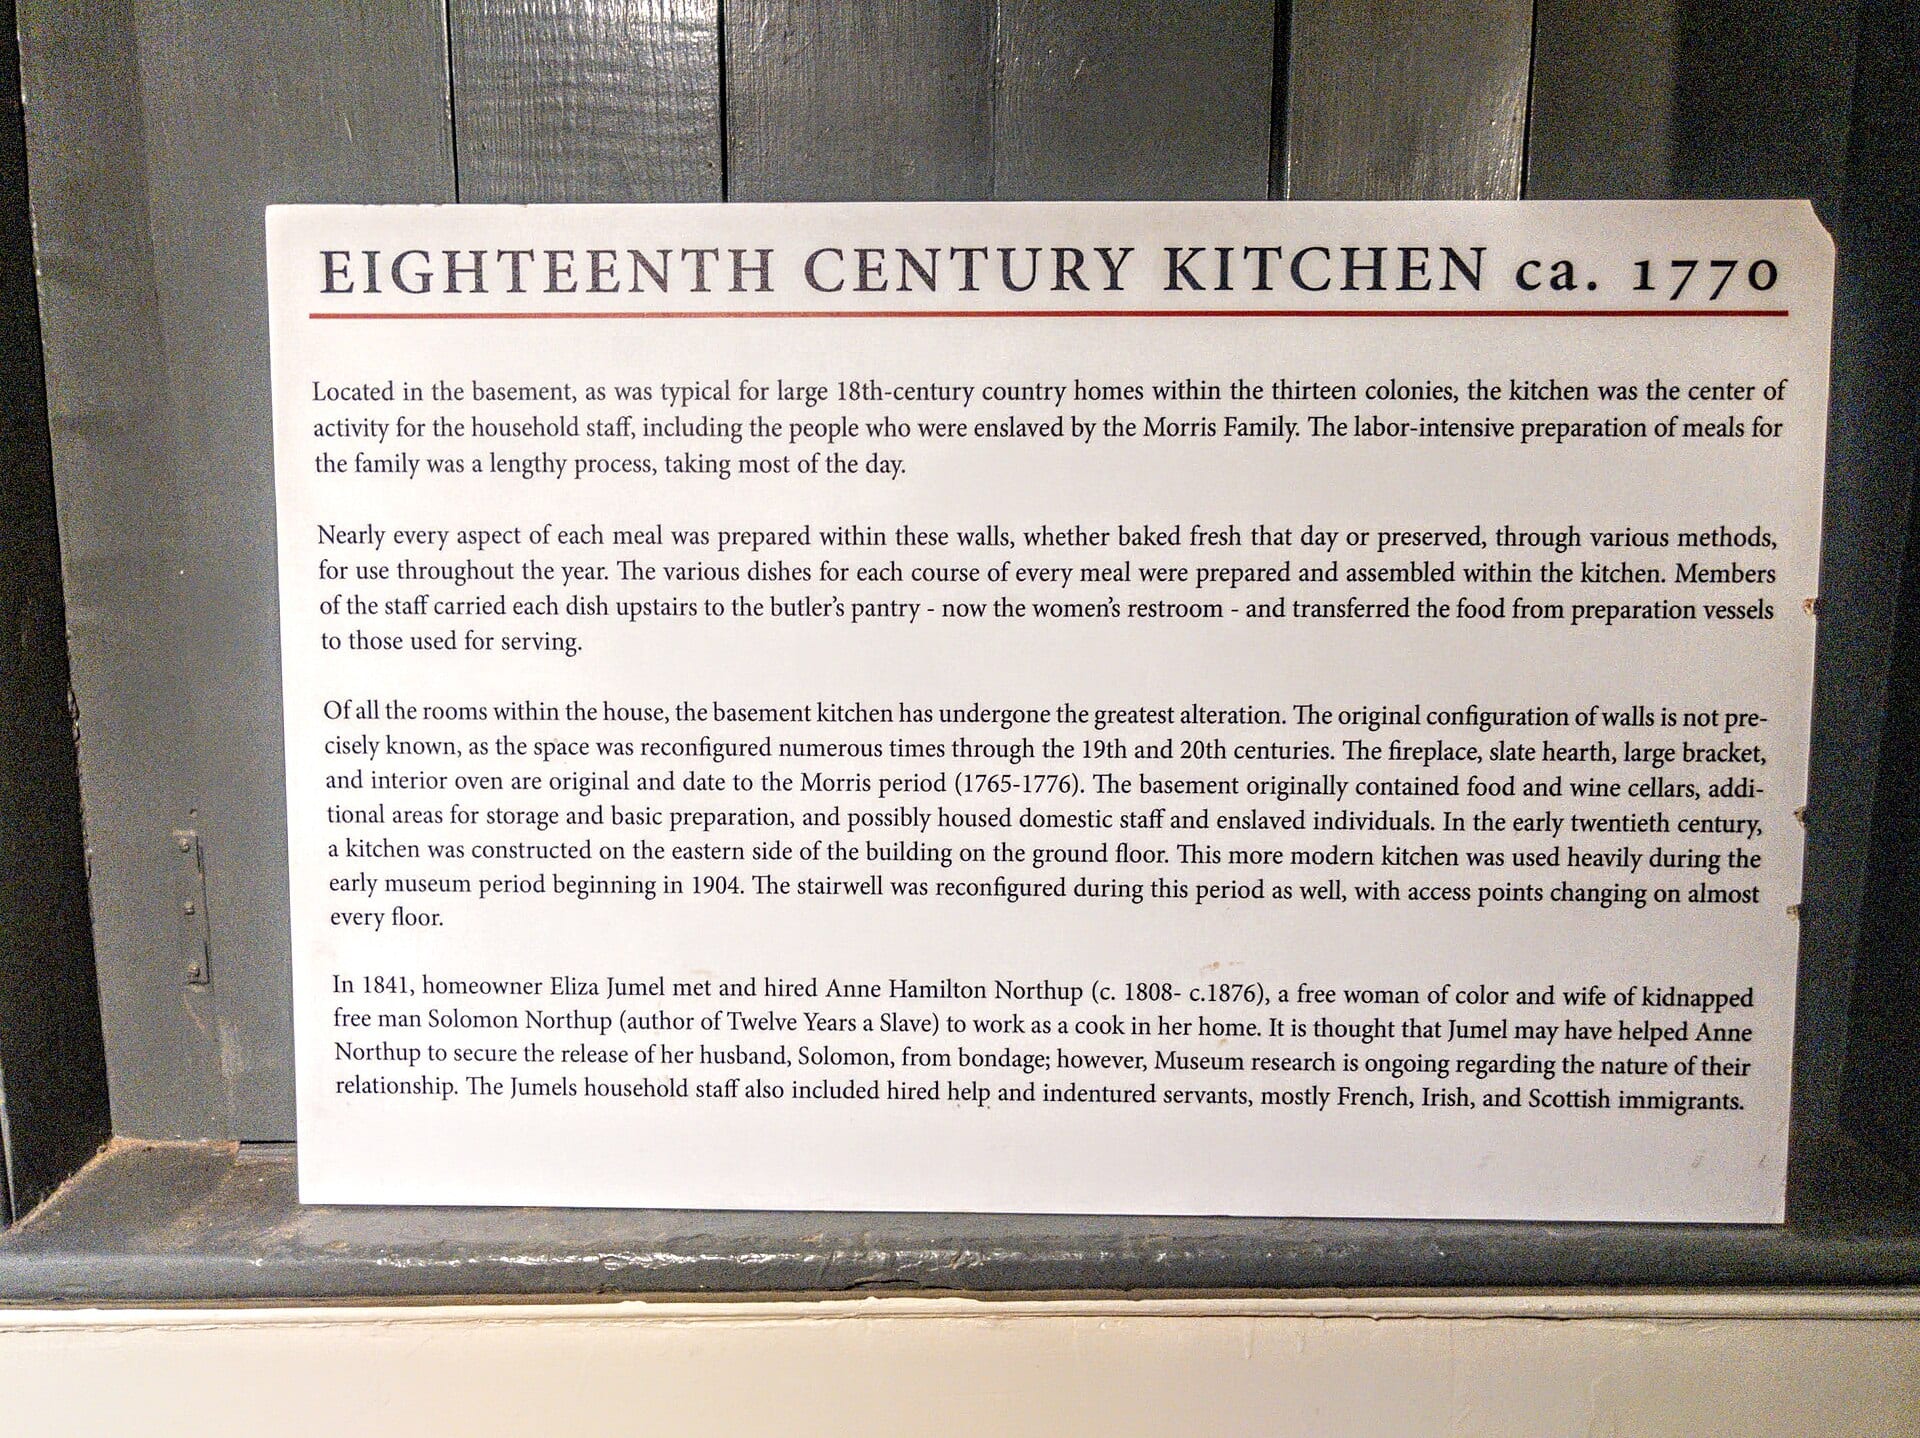 EIGHTEENTH CENTURY KITCHEN ca. 1770
Located in the basement, as was typical for large 18th-century country homes within the thirteen colonies, the kitchen was the center of
activity for the household staff, including the people who were enslaved by the Morris Family. The labor-intensive preparation of meals for
the family was a lengthy process, taking most of the day.
Nearly every aspect of each meal was prepared within these walls, whether baked fresh that day or preserved, through various methods,
for use throughout the year. The various dishes for each course of every meal were prepared and assembled within the kitchen. Members
of the staff carried each dish upstairs to the butler's pantry - now the women's restroom - and transferred the food from preparation vessels
to those used for serving.
Of all the rooms within the house, the basement kitchen has undergone the greatest alteration. The original configuration of walls is not pre-
cisely known, as the space was reconfigured numerous times through the 19th and 20th centuries. The fireplace, slate hearth, large bracket,
and interior oven are original and date to the Morris period (1765-1776). The basement originally contained food and wine cellars, addi-
tional areas for storage and basic preparation, and possibly housed domestic staff and enslaved individuals. In the early twentieth century,
a kitchen was constructed on the eastern side of the building on the ground floor. This more modern kitchen was used heavily during the
early museum period beginning in 1904. The stairwell was reconfigured during this period as well, with access points changing on almost
every floor.
In 1841, homeowner Eliza Jumel met and hired Anne Hamilton Northup (c. 1808- c.1876), a free woman of color and wife of kidnapped
free man Solomon Northup (author of Twelve Years a Slave) to work as a cook in her home. It is thought that Jumel may have helped Anne
Northup to secure the release of her husband, Solomon, from bondage; however, Museum research is ongoing regarding the nature of their
relationship. The Jumels household staff also included hired help and indentured servants, mostly French, Irish, and Scottish immigrants.